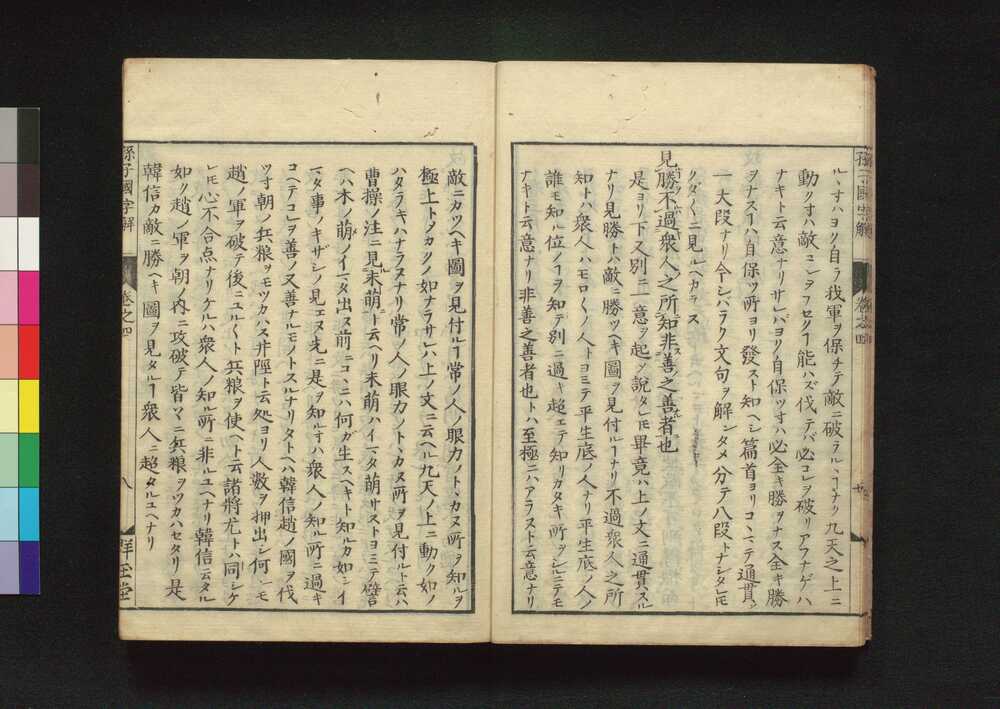 ルヿハヨク自ラ我軍ヲ保チテ敵ニ破ラルヽヿナク九天之上ニ
動クヿハ敵コレヲフセクヿ能ハズ伐テバ必コレヲ破リアマナゲハ
ナキト云意ナリサレバヨク自保ツヿハ必全キ勝ヲナス全キ勝
ヲナスヿハ自保ツ所ヨリ發スト知ヘシ篇首ヨリコヽマテ通貫シ
一大段ナリ今シバラク文句ヲ解センタメ分テ八段トナシタレモ
クダ〱ニ見ルヘカラス
見勝不過衆人之所知非善之善者也
是ヨリ下又別ニ一意ヲ起シ說タレモ畢竟ハ上ノ文ニ通貫スル
ナリ見勝トハ敵ニ勝ツヘキ圖ヲ見付ルヿナリ不過衆人之所
知トハ衆人ハモロ〱ノ人トヨミテ平生底ノ人ナリ平生底ノ人ノ
誰モ知ル位ノヿヲ知テ別ニ過キ超エテ知リカタキ所ヲシルニテモ
ナキト云意ナリ非善之善者也トハ至極ニハアラスト云意ナリ
孫子國字解
卷之四
敵ニカツヘキ圖ヲ見付ルヿ常ノ人ノ眼力ノトヽカヌ所ヲ知ルヲ
極上トメカクノ如ナラサレハ上ノ文ニ云ヘル九天ノ上ニ動ク如ノ
ハタラキハナラヌナリ常ノ人ノ眼力ノトヽカヌ所ヲ見付ルト云ハ
曹操ノ注ニ見未萌ト云ヘリ未萌ハイマタ萌サストヨミテ譬
ヘハ木ノ萌ノイマタ出ヌ前ニコヽニハ何ガ生スヘキト知ルカ如シイ
マタ事ノキザシノ見エヌ先ニ是ヲ知ルヿハ衆人ノ知ル所ニ過キ
コヘテコレヲ善ノ又善ナルモノトスルナリタトヘハ韓信趙ノ國ヲ伐
ツヿ朝ノ兵粮ヲモツカハス井陘ト云処ヨリ人數ヲ押出シ何レモ
趙ノ軍ヲ破テ後ニユル〱ト兵粮ヲ使ヘト云諸將尤トハ同シケ
レモ心不合点ナリケルハ衆人ノ知ル所ニ非ルユヘナリ韓信云タル
如ク趙ノ軍ヲ朝ノ內ニ攻破テ皆マニ兵粮ヲツカハセタリ是
韓信カ敵ニ勝ヘキ圖ヲ見タルヿ衆人ニ超タルユヘナリ
孫子國字解
卷之四
八
群玉堂